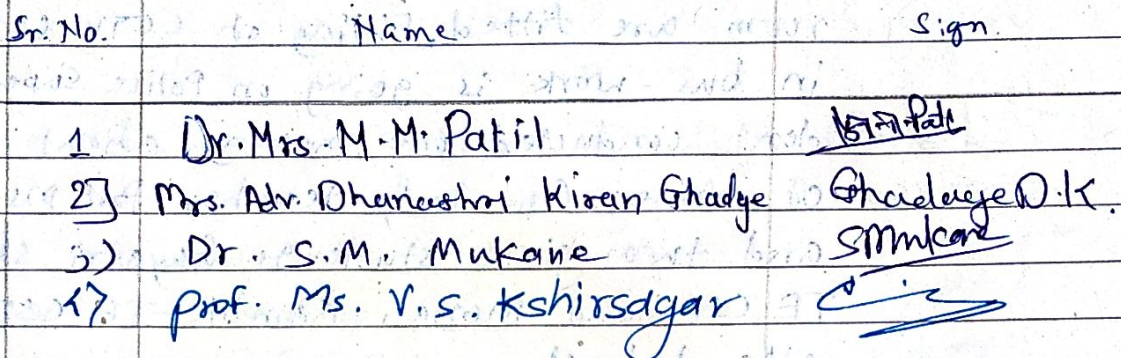 Sr. No. Name Sign.
1 Dr. Mrs. M. M. Patil
2] Mrs. Adv. Dhanashri Kiran Ghadye Ghadage D.K.
3) Dr. S. M. Mukane SMMukane
4) Prof. Ms. V. S. Kshirsagar